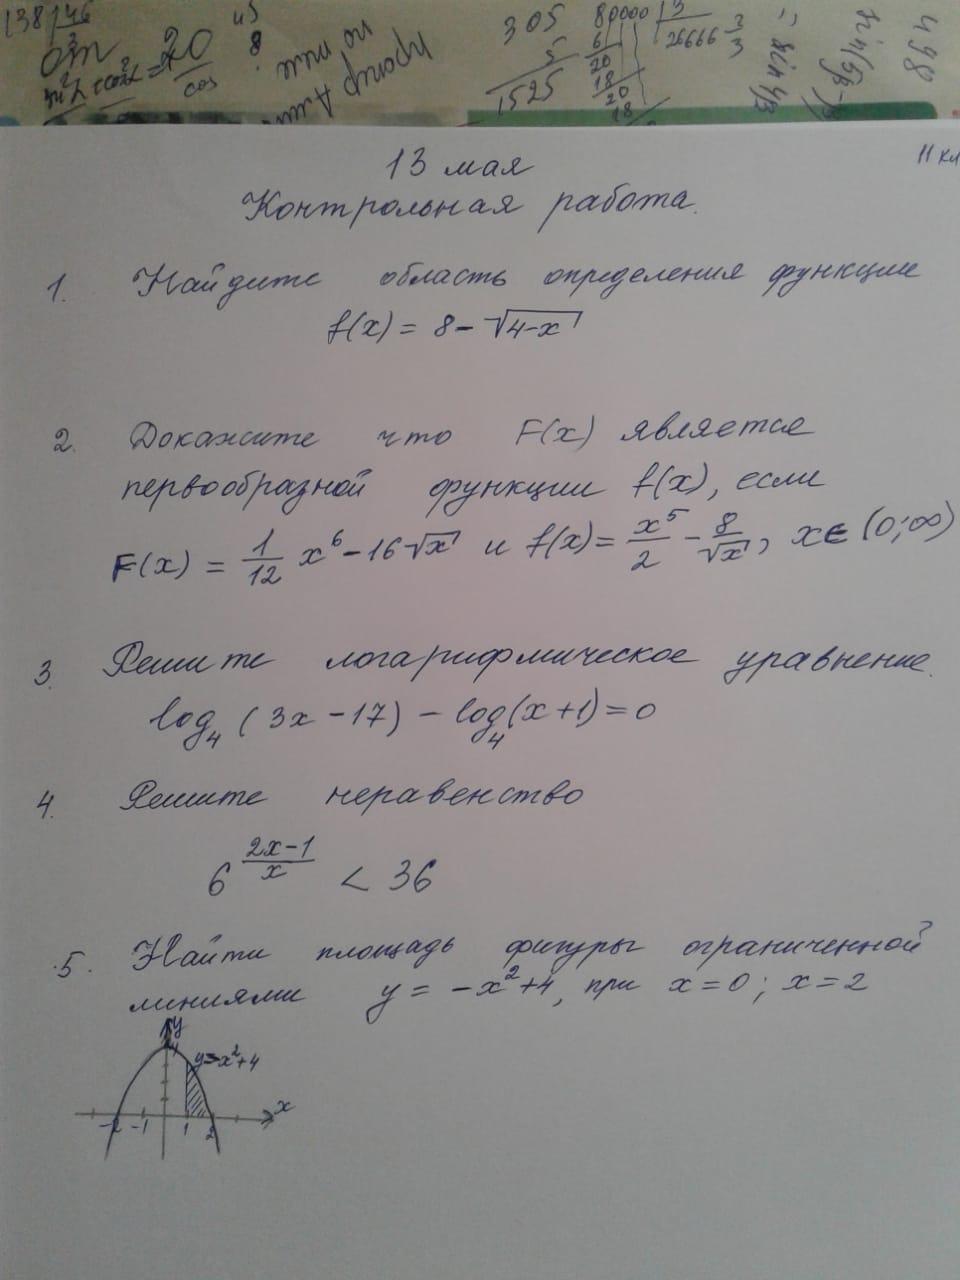 138 46
от
20
cos
45
8
305
5
1525
80000 3
6
26666 2
3
20
18
20
18
sin 4β
498
13 мая
11 кл
Контрольная работа.
1. Найдите область определения функции
f(x) = 8 - √4-x
2. Докажите что F(x) является
первообразной функции f(x), если
F(x) = 1/12 x⁶ - 16√x и f(x) = x⁵/2 - 8/√x, x ∈ (0; ∞)
3. Решите логарифмическое уравнение.
log₄ (3x - 17) - log₄ (x + 1) = 0
4. Решите неравенство
6^((2x-1)/x) < 36
5. Найти площадь фигуры ограниченной
линиями y = -x² + 4, при x = 0; x = 2
y
4
y=-x²+4
x
-2 -1 1 2